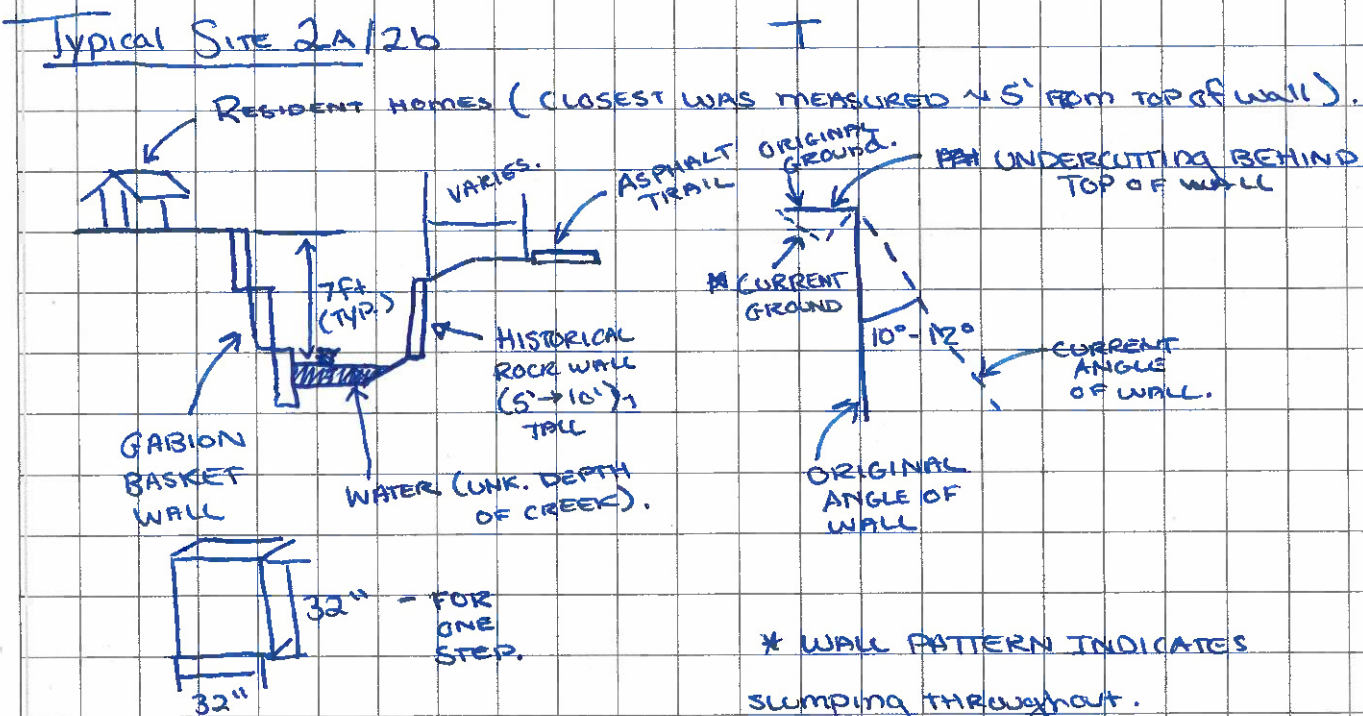 Typical SITE 2A/2b
T
RESIDENT HOMES (CLOSEST WAS MEASURED ~ 5' FROM TOP OF WALL).
VARIES.
ASPHALT
TRAIL
ORIGINAL
GROUND.
UNDERCUTTING BEHIND
TOP OF WALL
7Ft
(TYP.)
CURRENT
GROUND
HISTORICAL
ROCK WALL
(5'→10')
TALL
10°-12°
CURRENT
ANGLE
OF WALL.
GABION
BASKET
WALL
WATER (UNK. DEPTH
OF CREEK).
ORIGINAL
ANGLE OF
WALL
32" - FOR
ONE
STEP.
32"
* WALL PATTERN INDICATES
slumping THROUGHOUT.